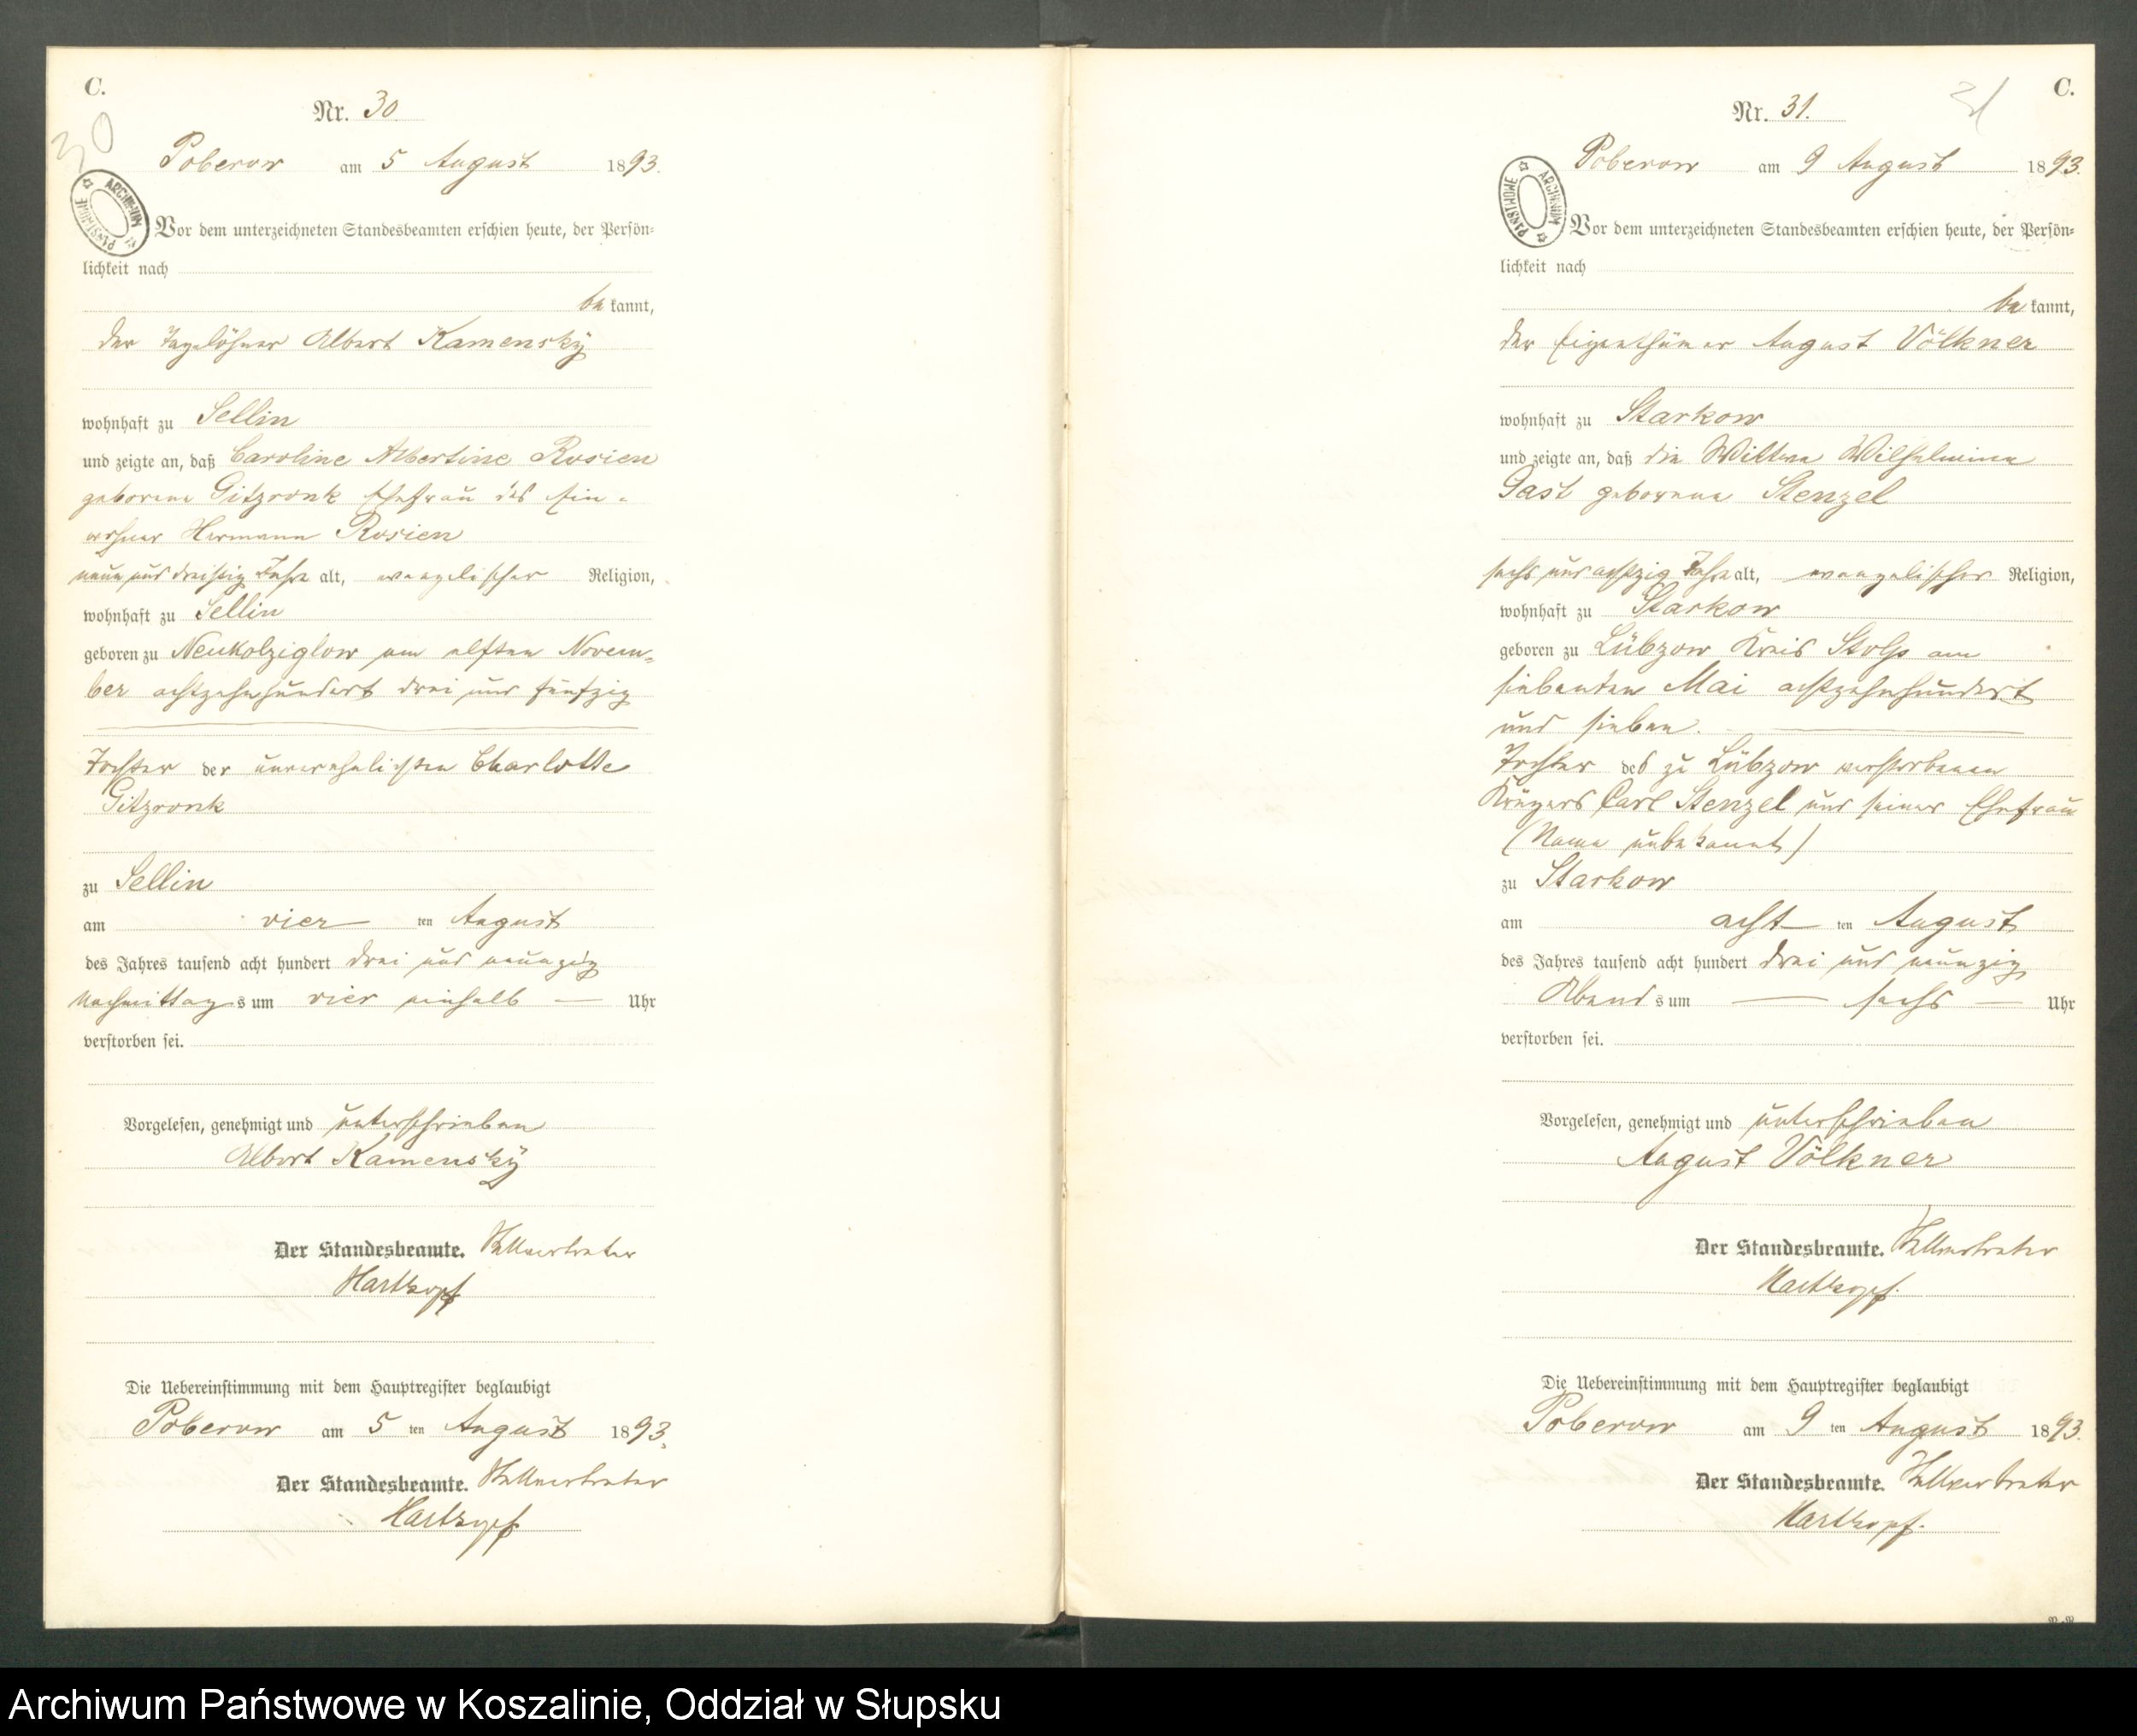 C.
30
Nr. 30.
Poberow am 5 August 1893.
ARCHIWUM PAŃSTWOWE
Vor dem unterzeichneten Standesbeamten erschien heute, der Persön=
lichkeit nach
be kannt,
der Tagelöhner Albert Kamensky
wohnhaft zu Sellin
und zeigte an, daß Caroline Albertine Rosien
geborene Gitzronk Ehefrau des Ein-
wohner Hermann Rosien
neun und dreißig Jahre alt, evangelischer Religion,
wohnhaft zu Sellin
geboren zu Neukolziglow am elften Novem-
ber achtzehnhundert drei und fünfzig
Tochter der unverehelichten Charlotte
Gitzronk
zu Sellin
am vier ten August
des Jahres tausend acht hundert drei und neunzig
Nachmittag s um vier einhalb Uhr
verstorben sei.
Vorgelesen, genehmigt und unterschrieben
Albert Kamensky
Der Standesbeamte. Stellvertreter
Hartkopf
Die Uebereinstimmung mit dem Hauptregister beglaubigt
Poberow am 5 ten August 1893.
Der Standesbeamte. Stellvertreter
Hartkopf
C.
31
Nr. 31.
Poberow am 9 August 1893.
ARCHIWUM PAŃSTWOWE
Vor dem unterzeichneten Standesbeamten erschien heute, der Persön=
lichkeit nach
be kannt,
der Eigenthümer August Völkner
wohnhaft zu Starkow
und zeigte an, daß die Wittwe Wilhelmine
Gast geborene Stenzel
sechs und achtzig Jahre alt, evangelischer Religion,
wohnhaft zu Starkow
geboren zu Lübzow Kreis Stolp am
siebenten Mai achtzehnhundert
und sieben.
Tochter des zu Lübzow verstorbenen
Krügers Carl Stenzel und seiner Ehefrau
(Name unbekannt)
zu Starkow
am acht ten August
des Jahres tausend acht hundert drei und neunzig
Abend s um sechs Uhr
verstorben sei.
Vorgelesen, genehmigt und unterschrieben
August Völkner
Der Standesbeamte. Stellvertreter
Hartkopf.
Die Uebereinstimmung mit dem Hauptregister beglaubigt
Poberow am 9 ten August 1893.
Der Standesbeamte. Stellvertreter
Hartkopf.
Archiwum Państwowe w Koszalinie, Oddział w Słupsku